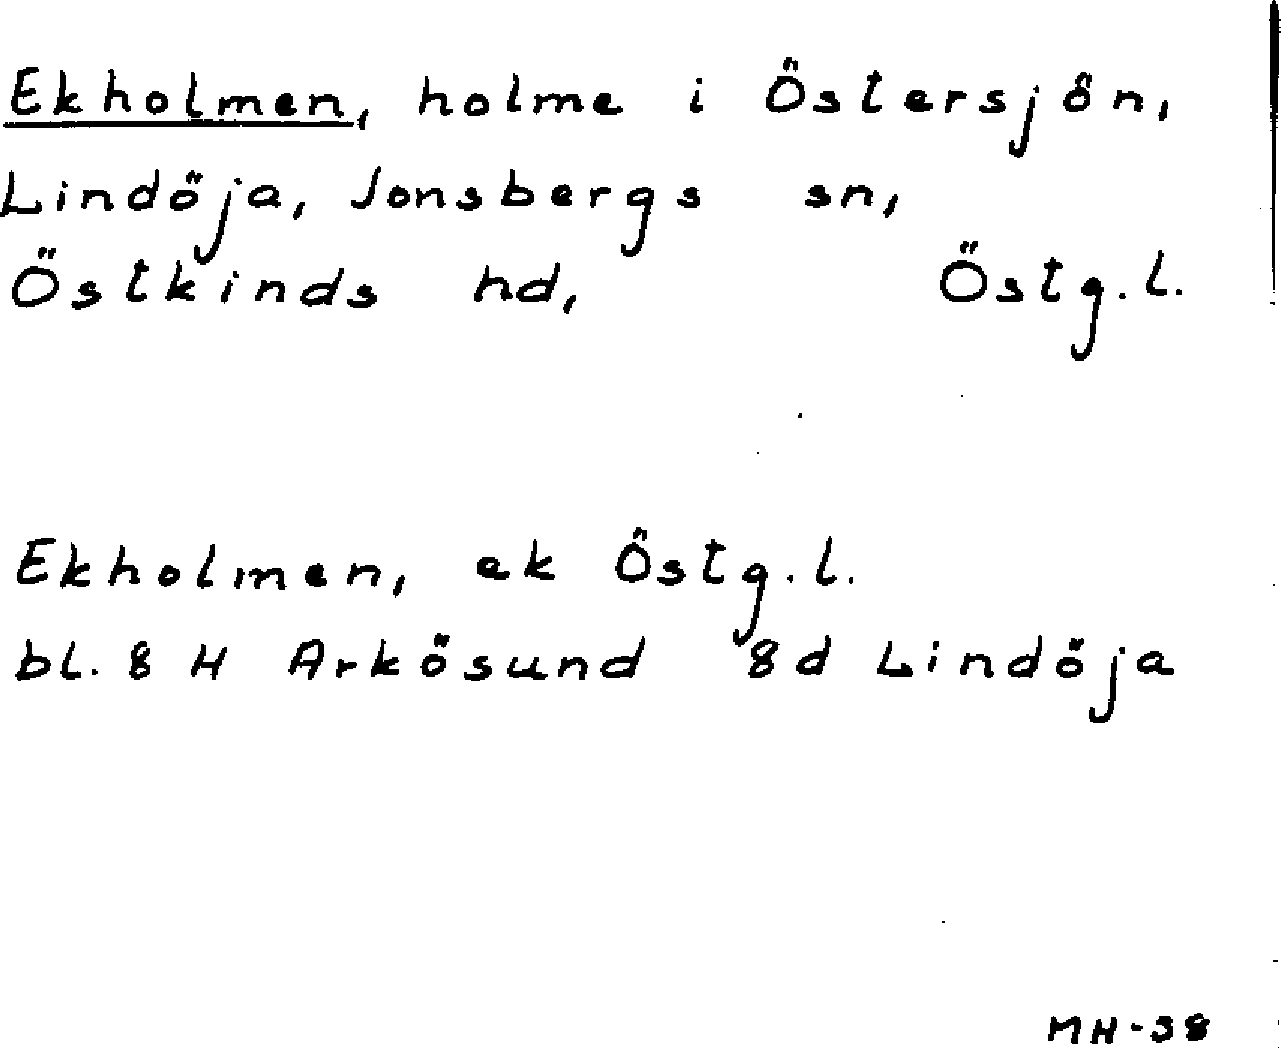 Ekholmen, holme i Östersjön,
Lindöja, Jonsbergs sn,
Östkinds hd, Östg.l.
Ekholmen, ek Östg.l.
bl. 8 H Arkösund 8d Lindöja